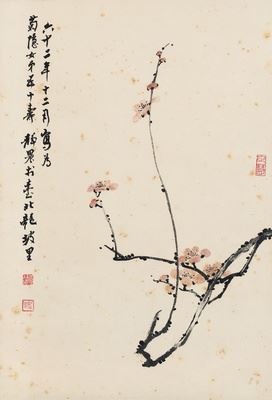 六十二年十二月寫為
菊隱女弟五十壽 靜農於臺北龍坡里